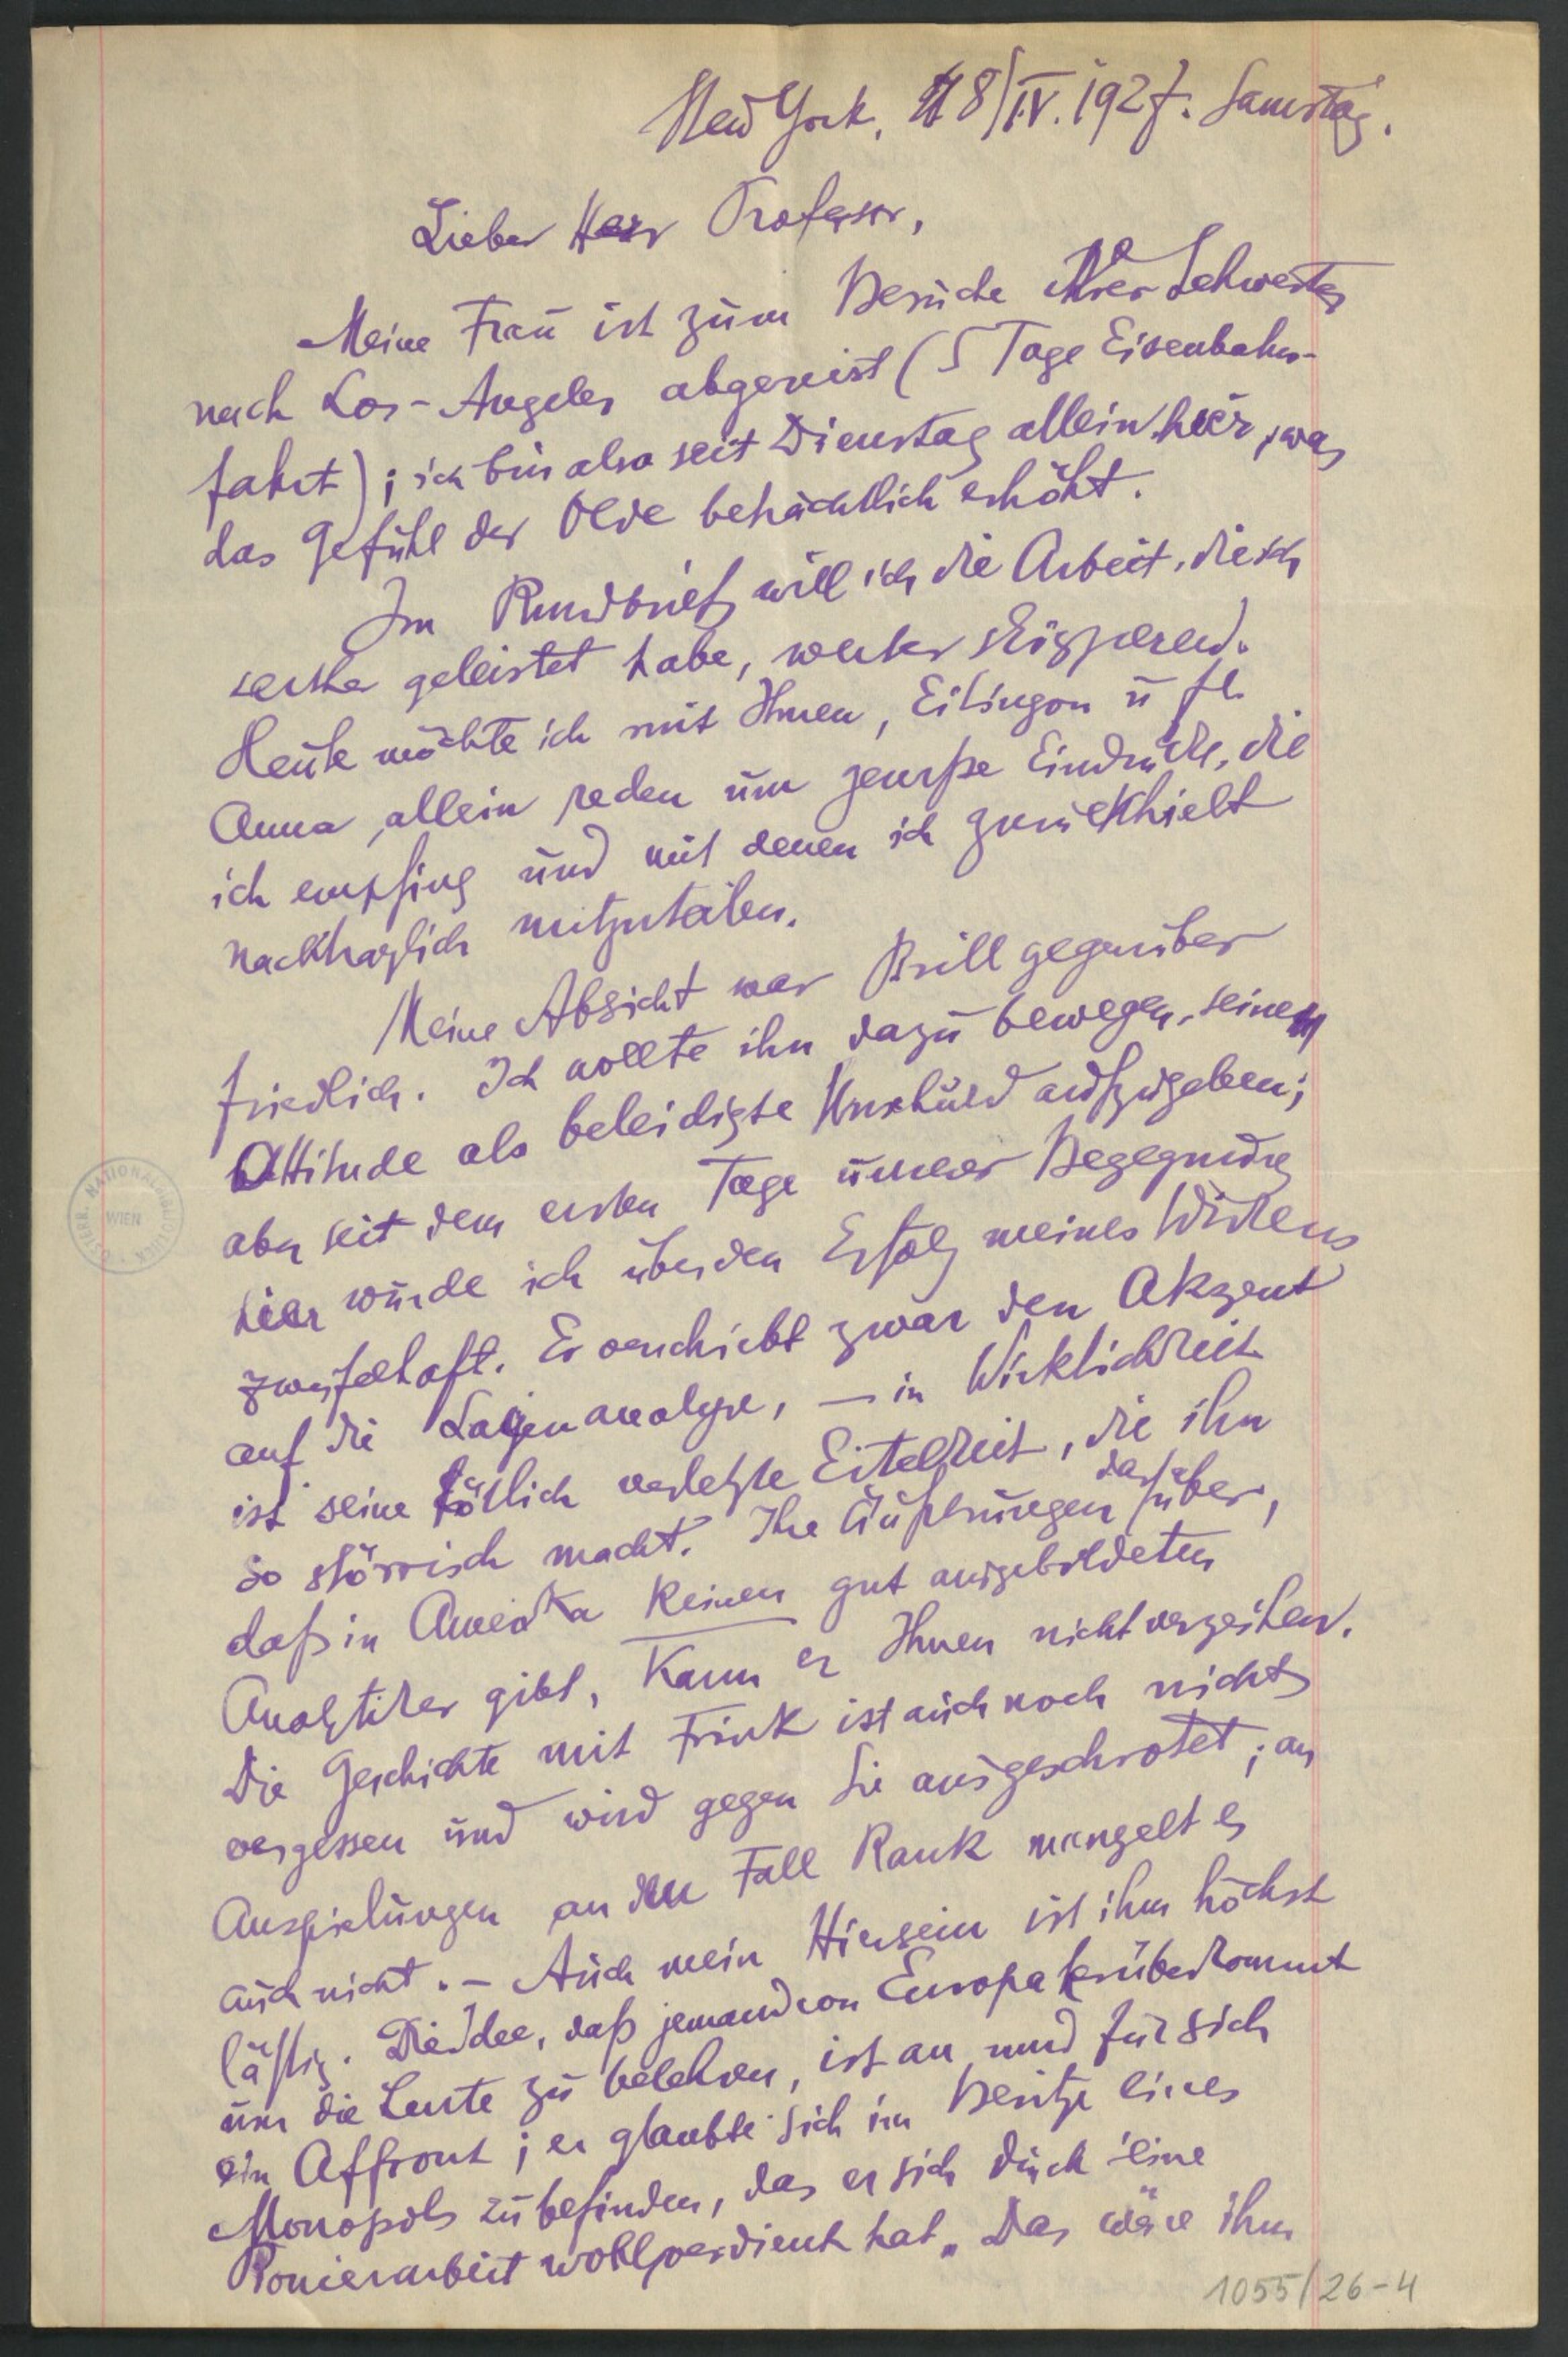 New York, 8/IV. 1927. Samstag.
Lieber Herr Professor,
Meine Frau ist zum Besuche ihrer Schwester
nach Los-Angeles abgereist (5 Tage Eisenbahn-
fahrt); ich bin also seit Dienstag allein hier, was
das Gefühl der Öde beträchtlich erhöht.
Im Rundbrief will ich die Arbeit, die ich
seither geleistet habe, weiter skizzieren.
Heute möchte ich mit Ihnen, Eitingon ü Frl.
Anna, allein reden um gewiße Eindrücke, die
ich empfing und mit denen ich zurückhielt
nachträglich mitzuteilen.
Meine Absicht war Brill gegenüber
friedlich. Ich wollte ihn dazu bewegen, seine
Attitude als beleidigte Unschuld aufzugeben;
aber seit dem ersten Tage unserer Begegnung
hier wurde ich über den Erfolg meines Wirkens
zweifelhaft. Er verschiebt zwar den Akzent
auf die Laienanalyse, – in Wirklichkeit
ist seine tötlich verletzte Eitelkeit, die ihn
so störrisch macht. Ihre Äußerungen darüber,
daß in Amerika keinen gut ausgebildeten
Analytiker gibt, kann er Ihnen nicht verzeihen.
Die Geschichte mit Frink ist auch noch nicht
vergessen und wird gegen Sie ausgeschrotet; an
Anspielungen an den Fall Rank mangelt es
auch nicht. – Auch mein Hiersein ist ihm höchst
lästig. Die Idee, daß jemand von Europa herüberkommt
um die Leute zu belehren, ist an und für sich
ein Affront; er glaubte sich im Besitze eines
Monopols zu befinden, das er sich durch seine
Pionierarbeit wohlverdient hat. Das wäre ihm
1055/26-4
ÖSTERR. NATIONALBIBLIOTHEK
WIEN